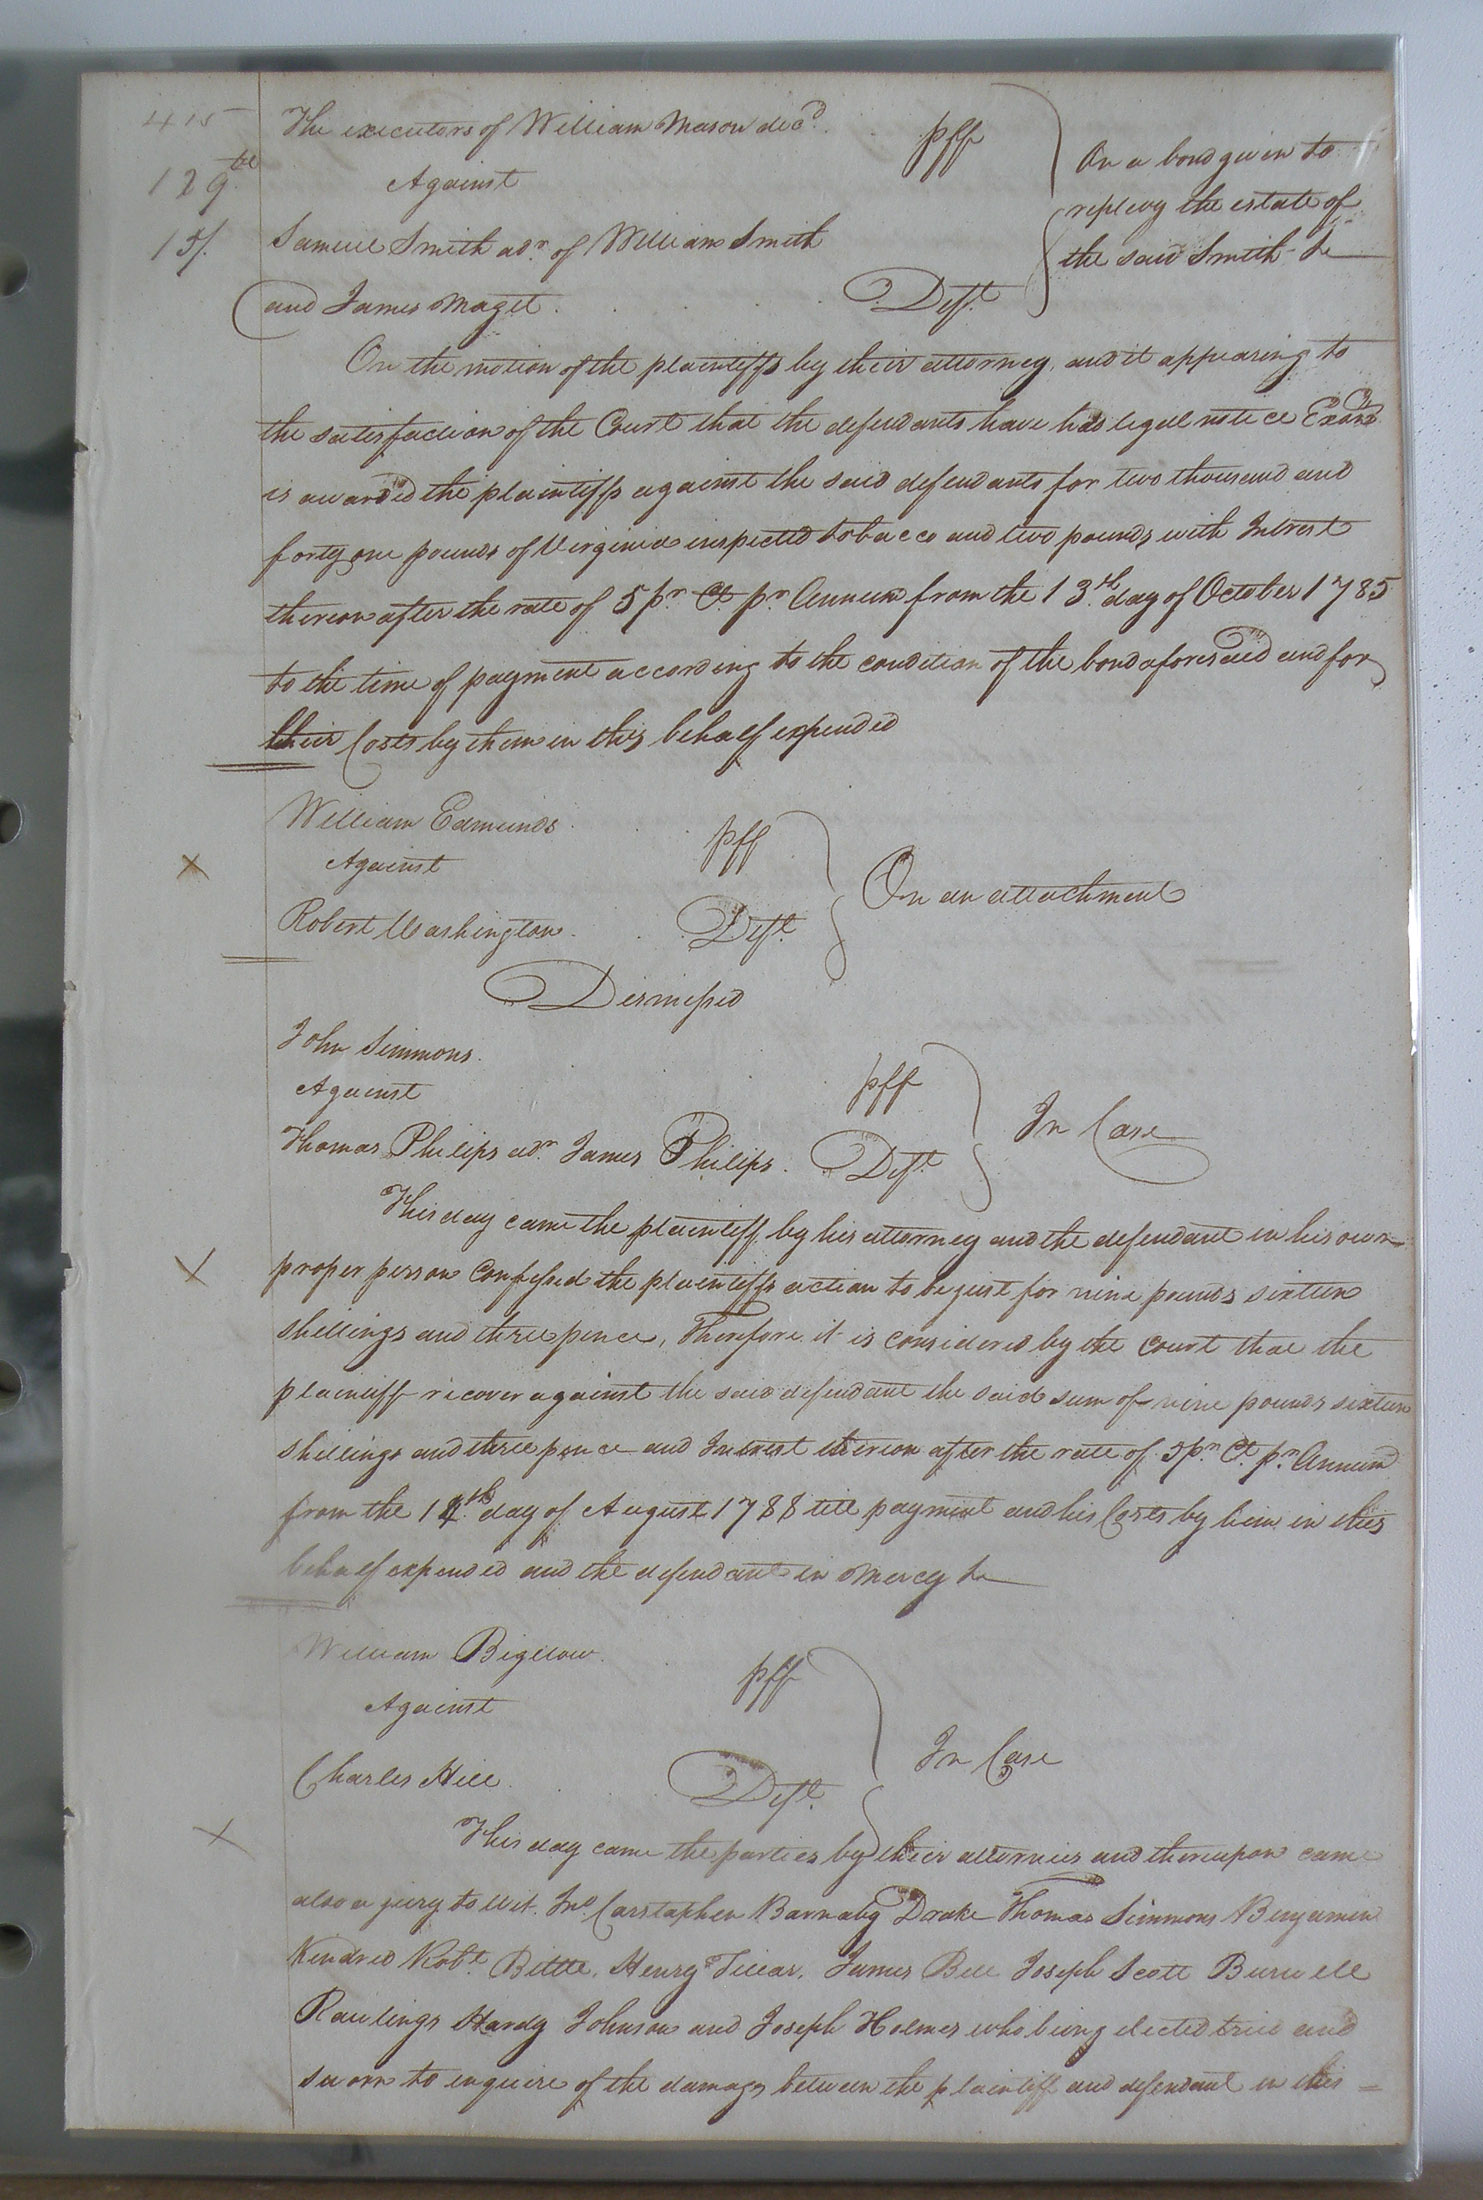 415
129 tb
15/.
The executors of William Mason decd. pff
Against
Samuel Smith adr. of William Smith
and James Maget. Deft.
On a bond given to
replevy the estate of
the said Smith &c
On the motion of the plaintiffs by their attorney, and it appearing to
the satisfaction of the Court that the defendants have had legal notice Exon
is awarded the plaintiffs against the said defendants for two thousand and
forty one pounds of Virginia inspected tobacco and two pounds with Intrest
thereon after the rate of 5 pr. Ct. pr. Annum from the 13th. day of October 1785
to the time of payment according to the condition of the bond aforesaid and for
their Costs by them in this behalf expended
William Edmunds. pff
Against
Robert Washington. Deft.
On an attachment
Dismissed
John Simmons. pff
Against
Thomas Philips adr. James Philips. Deft.
In Case
This day came the plaintiff by his attorney and the defendant in his own
proper person Confessed the plaintiffs action to be just for nine pounds sixteen
shillings and three pence, Therefore it is considered by the Court that the
plaintiff recover against the said defendant the said sum of nine pounds sixteen
shillings and three pence and Intrest thereon after the rate of 5 pr. Ct. pr. Annum
from the 14th. day of August 1788 till payment and his Costs by him in this
behalf expended and the defendant in Mercy &c
William Bigelow. pff
Against
Charles Hill. Deft.
In Case
This day came the parties by their attornies and thereupon came
also a jury to wit. Jno. Carstaphen Barnaby Drake Thomas Simmons Benjamin
Kendred Robt. Bittle, Henry Tillar, James Bell Joseph Scott Burwell
Rawlings Hardy Johnson and Joseph Holmes who being elected tried and
sworn to enquire of the damages between the plaintiff and defendant in this